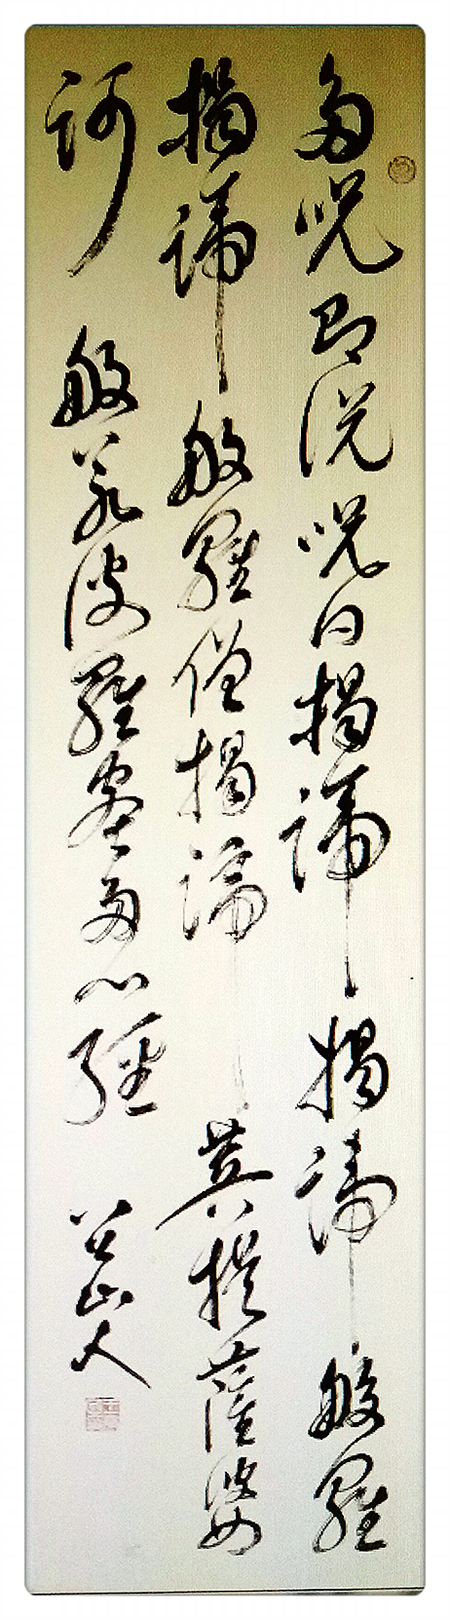 多呪即說呪曰揭諦揭諦般羅
揭諦般羅僧揭諦菩提薩婆
訶 般若波羅蜜多心經 山人